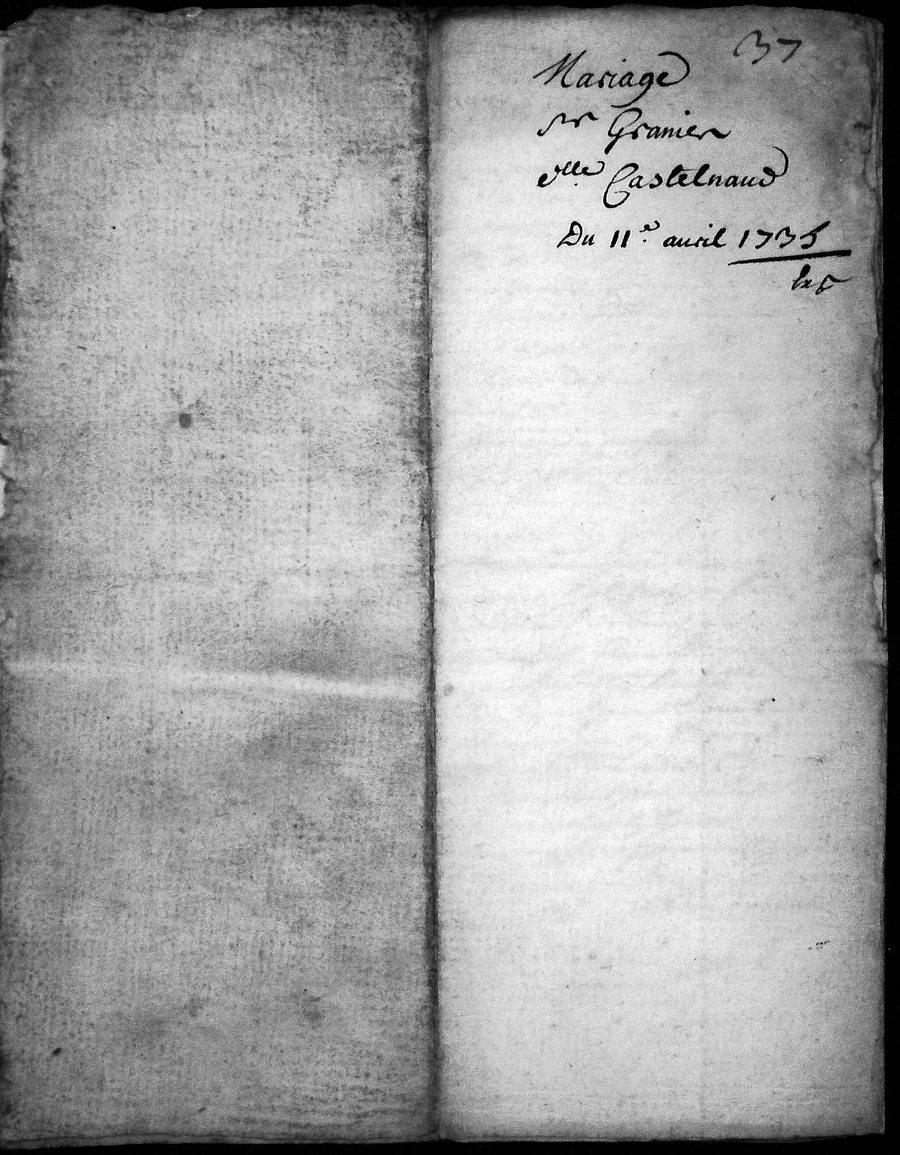 37
Mariage
Sr Granier
dlle Castelnaud
Du 11e. avril 1735